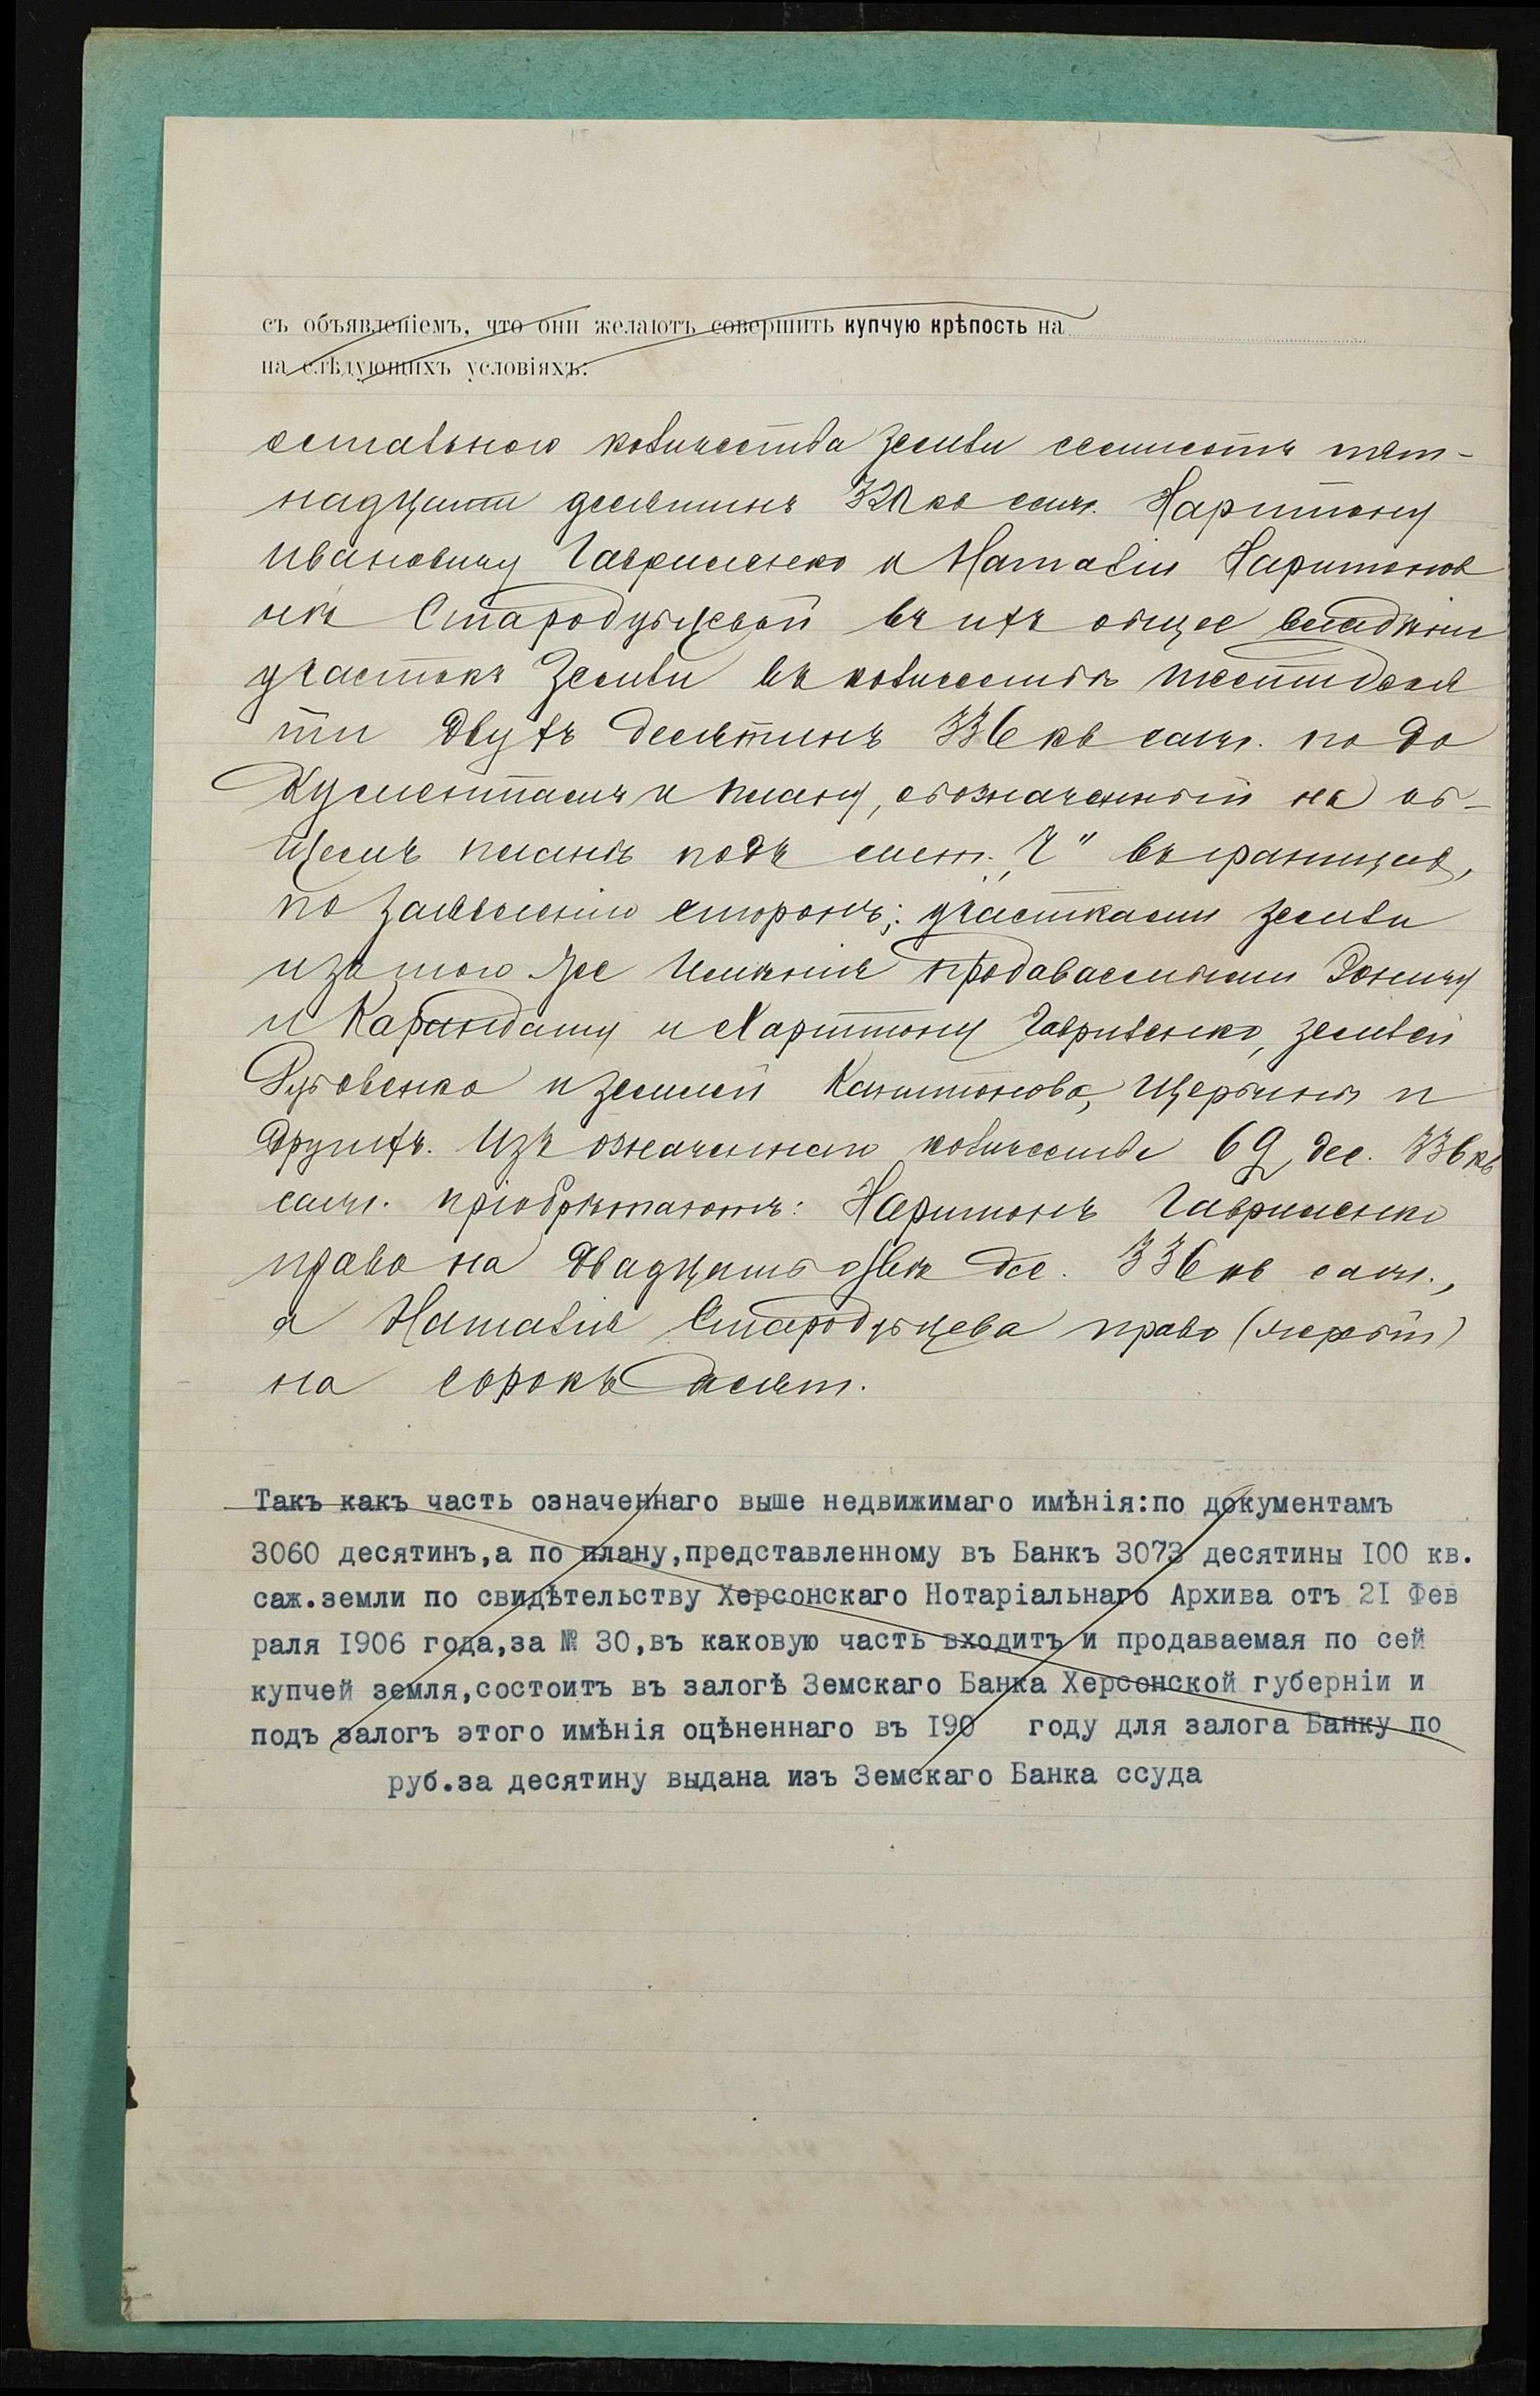 съ объявленіемъ, что они желаютъ совершить купчую крѣпость на
на слѣдующихъ условіяхъ:
остального количества земли семисотъ пят-
надцати десятинъ 320 кв саж. Харитону
Ивановичу Гавриленко и Наталіи Харитонов
нѣ Стародубцевой въ ихъ общее владѣніе
участокъ земли въ количествѣ шестидеся
ти двухъ десятинъ 336 кв саж. по до
кументамъ и плану, обозначенный на об-
щемъ планѣ подъ лит. „Ч" въ границахъ,
по заявленію сторонъ: участками земли
изъ того же имѣнія продаваемыми
и Карандашу и Харитону Гавриленко, землей
и землей Капитонова, Щербины и
другихъ. Изъ означеннаго количества 62 дес. 336 кв
саж. пріобрѣтаютъ: Харитонъ Гавриленко
право на двадцать двѣ дес. 336 кв саж.,
а Наталія Стародубцева право (жеребій)
на сорокъ десят.
Такъ какъ часть означеннаго выше недвижимаго имѣнія:по документамъ
3060 десятинъ,а по плану,представленному въ Банкъ 3073 десятины I00 кв.
саж.земли по свидѣтельству Херсонскаго Нотаріальнаго Архива отъ 2I Фев
раля I906 года,за № 30,въ каковую часть входитъ и продаваемая по сей
купчей земля,состоитъ въ залогѣ Земскаго Банка Херсонской губерніи и
подъ залогъ этого имѣнія оцѣненнаго въ I90 году для залога Банку по
руб.за десятину выдана изъ Земскаго Банка ссуда